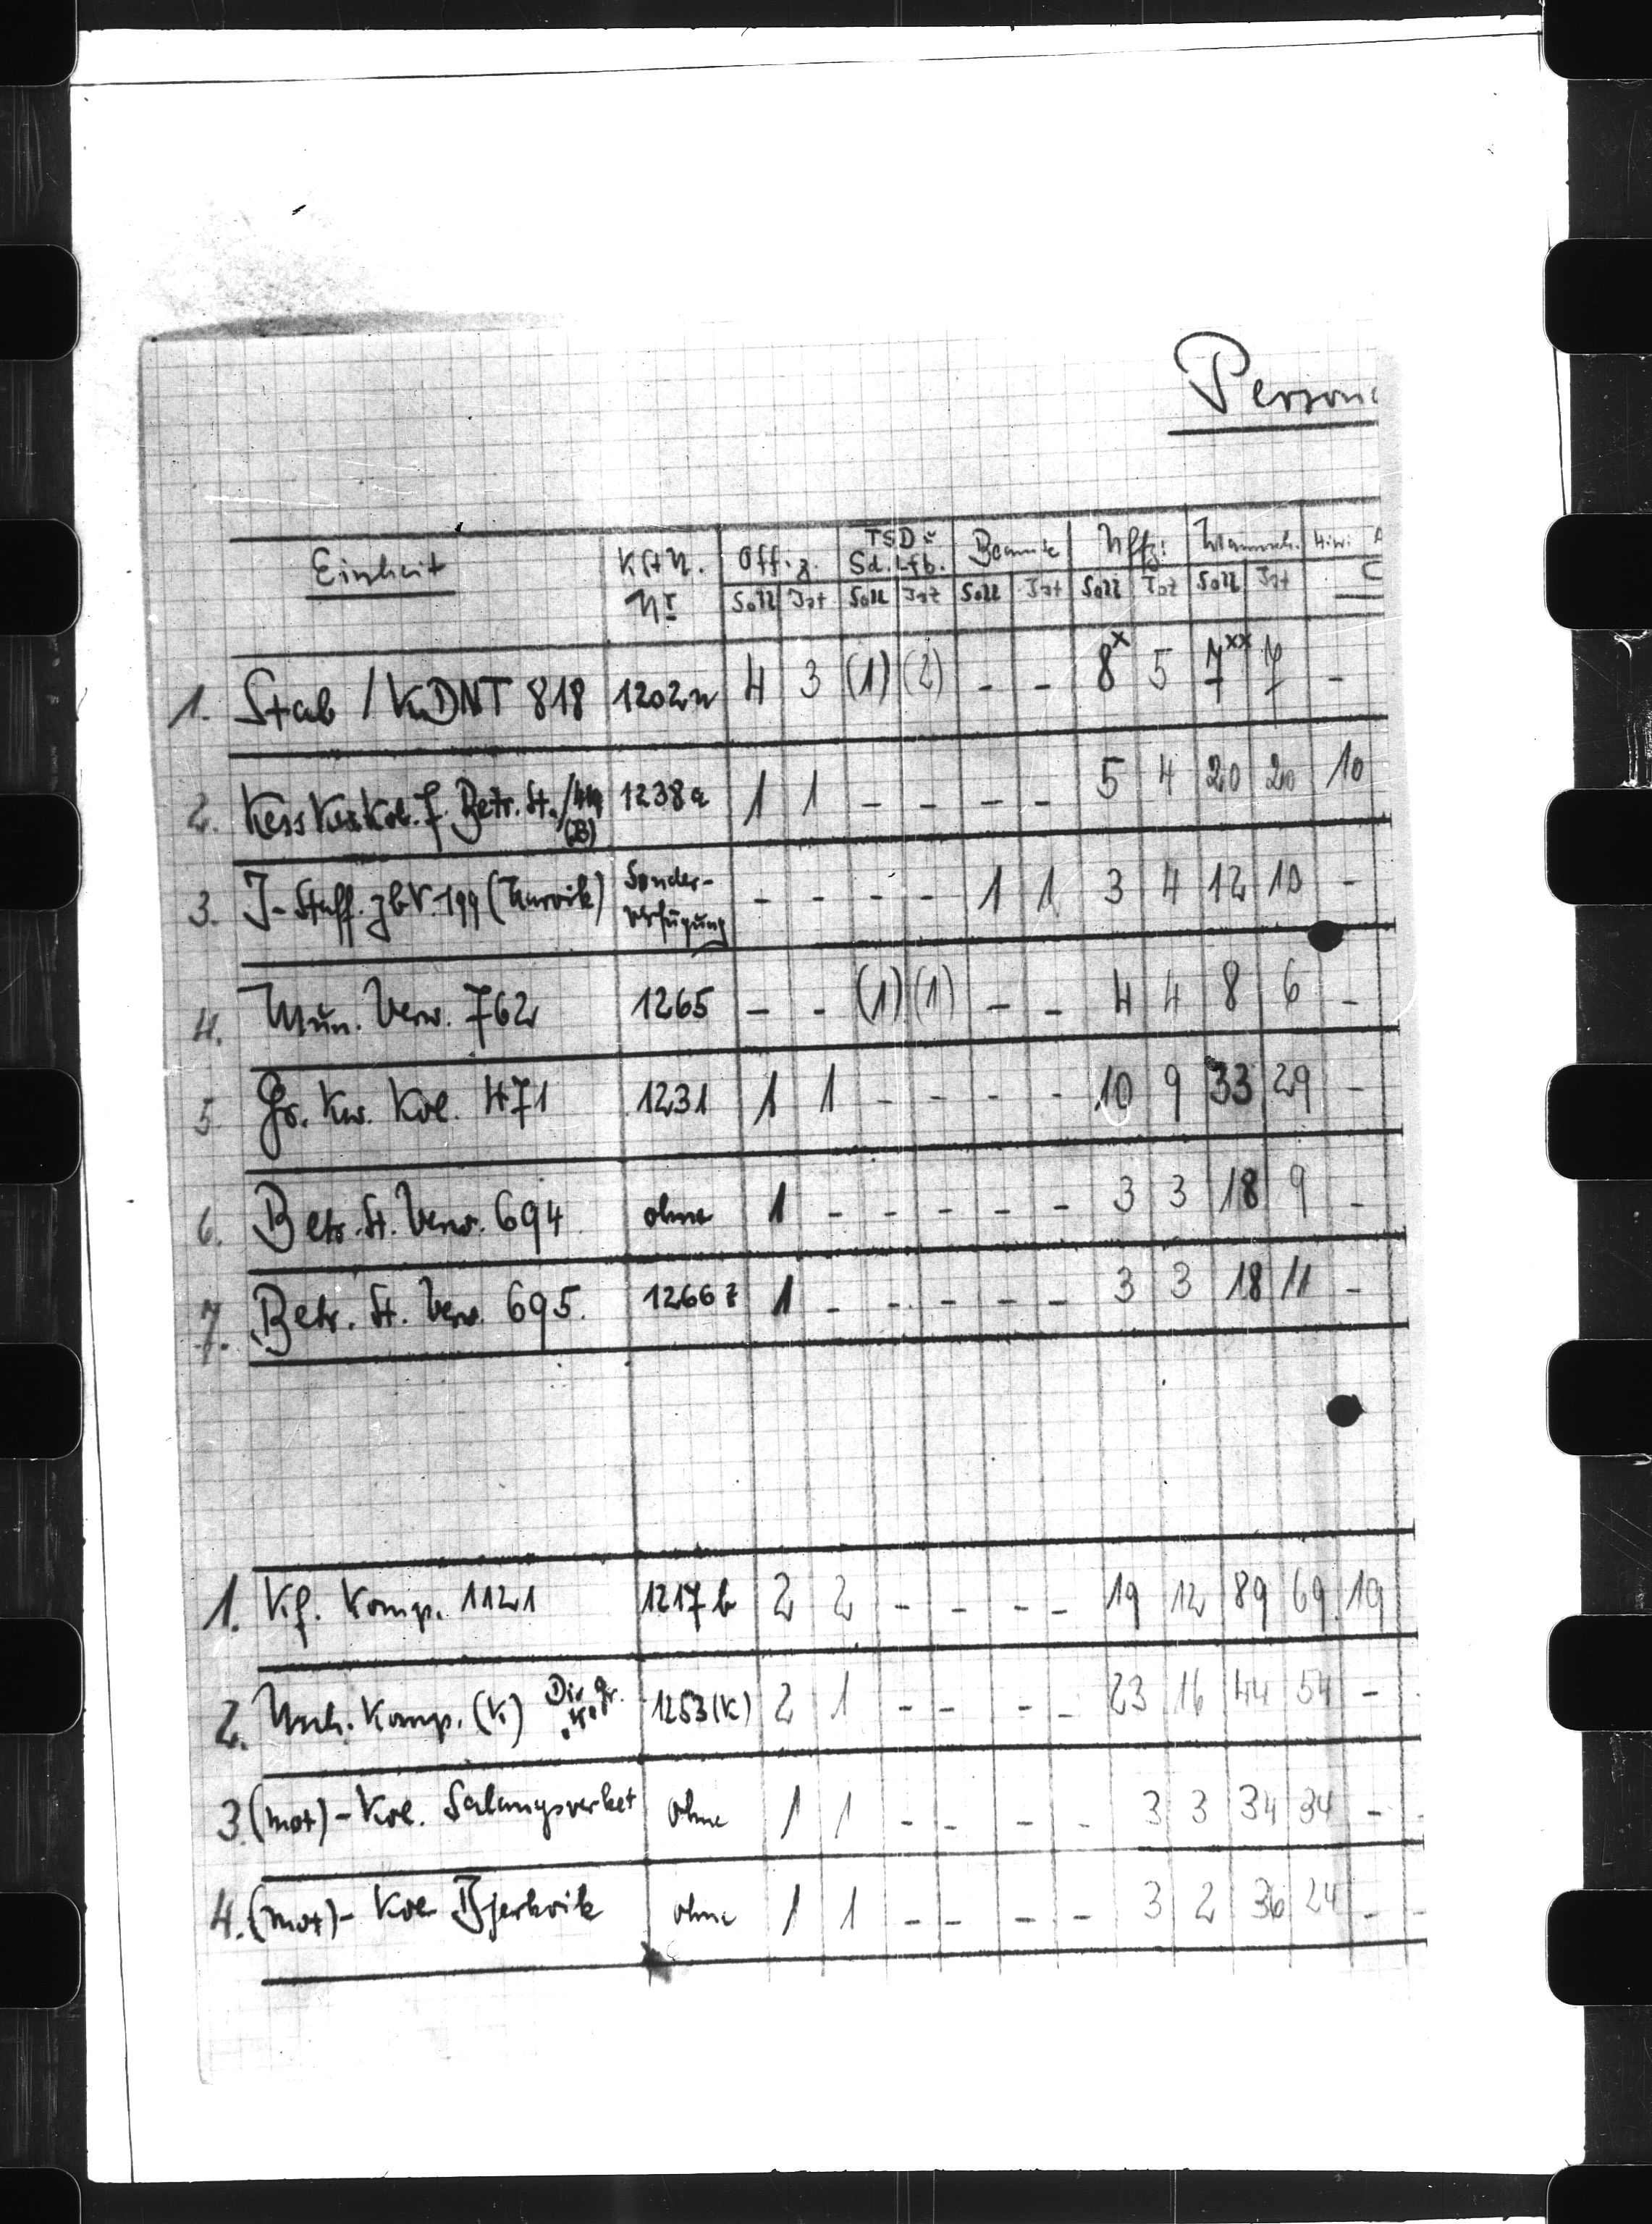 Person
Einheit K.St.N. Nr Offiz. TSD u. Sd. Lfb. Beamte Uffz. Mannsch. Hiwi
Soll Ist Soll Ist Soll Ist Soll Ist Soll Ist
1. Stab / KDNT 818 1202n 4 3 (1) (2) - - 8x 5 7xx 7 -
2. f. Betr. St. (B) 1238a 1 1 - - - - 5 4 20 20 10
3. J-Staff. z.b.V. 199 (Narvik) Sonder-verfügung - - - - 1 1 3 4 12 10 -
4. Mun. Verw. 762 1265 - - (1) (1) - - 4 4 8 6 -
5. Gr. Kw. Kol. 471 1231 1 1 - - - - 10 9 33 29 -
6. Betr. St. Verw. 694 ohne 1 - - - - - 3 3 18 9 -
7. Betr. St. Verw. 695. 1266z 1 - - - - - 3 3 18 11 -
1. Kf. Komp. 1121 1217b 2 2 - - - - 19 12 89 69 19
2. Nsch. Komp. (K) Div. Gr. 1253(K) 2 1 - - - - 23 16 44 54 -
3. (mot)-Kol. Salangsverket ohne 1 1 - - - - 3 3 34 34 -
4. (mot)-Kol. Bjerkvik ohne 1 1 - - - - 3 2 36 24 -